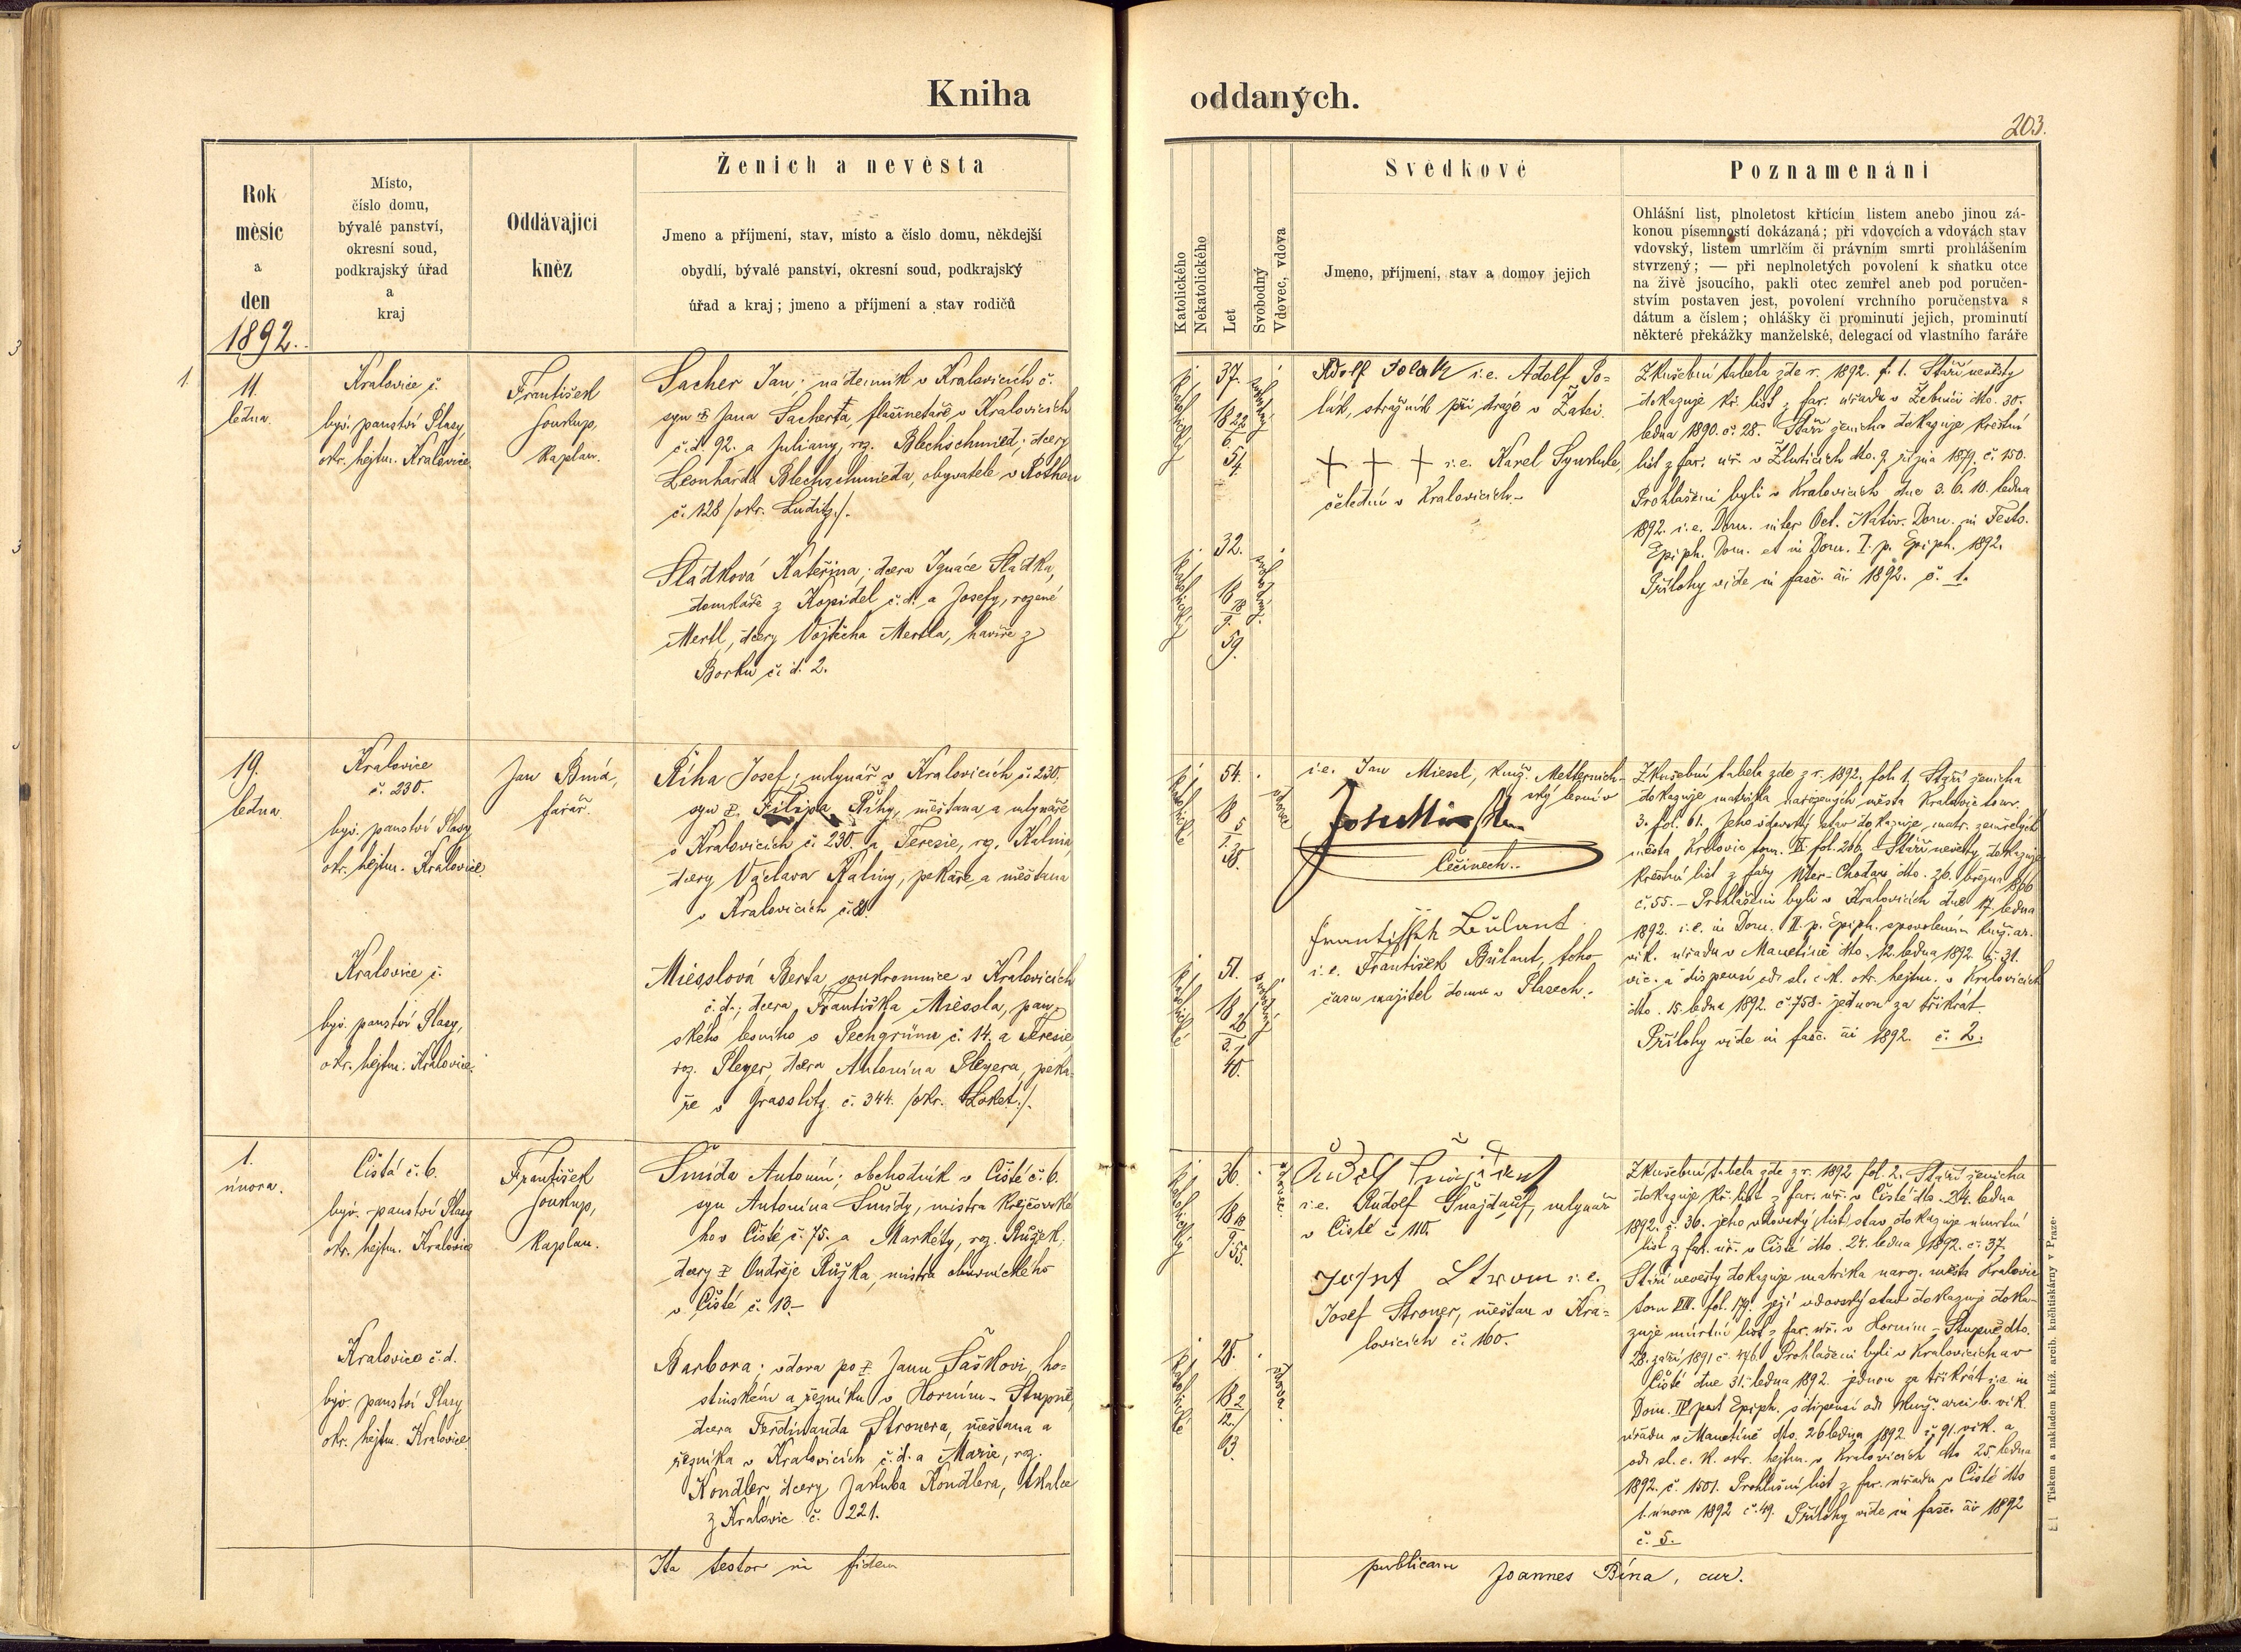 Kniha oddaných.
203.
Rok
měsíc
a
den
1892.
Místo,
číslo domu,
bývalé panství,
okresní soud,
podkrajský úřad
a
kraj
Oddávající
kněz
Ženich a nevěsta
Jmeno a příjmení, stav, místo a číslo domu, někdejší
obydlí, bývalé panství, okresní soud, podkrajský
úřad a kraj; jmeno a příjmení a stav rodičů
Katolického
Nekatolického
Let
Svobodný
Vdovec, vdova
Svědkové
Jmeno, příjmení, stav a domov jejich
Poznamenání
Ohlášní list, plnoletost křticím listem anebo jinou zá-
konou písemností dokázaná; při vdovcích a vdovách stav
vdovský, listem umrlčím či právním smrti prohlášením
stvrzený; — při neplnoletých povolení k sňatku otce
na živě jsoucího, pakli otec zemřel aneb pod poručen-
stvím postaven jest, povolení vrchního poručenstva s
dátum a číslem; ohlášky či prominutí jejich, prominutí
některé překážky manželské, delegací od vlastního faráře
1.
11.
ledna.
Kralovice č.
býv. panství Plasy,
okr. hejtm. Kralovice.
František
Soukup,
kaplan.
Sacher Jan; nádenník v Kralovicích č.
syn Jana Sachera, flašinetáře v Kralovicích
č. d. 92. a Juliany, roz. Blechschmied, dcery
Leonharda Blechschmieda, obyvatele v
č. 128 /okr. Luditz/.
Sládková Kateřina; dcera Ignáce Sládka,
domkáře z Kopidel č. d. a Josefy, rozené
Mertl, dcery Vojtěcha Mertla, havíře z
Borku č. d. 2.
katolický
37.
18 22/6. 54.
svobodný
katolický
32.
18 18/9. 59.
svobodná
Adolf Polak i. e. Adolf Po-
lák, strážník při dráze v Žatci.
† † † i. e. Karel
čeledín v Kralovicích.
Zkušební tabela zde r. 1892. f. 1. Stáří nevěsty
dokazuje kř. list z far. úřadu v Žebnici dto. 30.
ledna 1890. č. 28. Stáří ženicha dokazuje křestní
list z far. úř. v Žluticích dto. 9. října 1879. č. 150.
Prohlášeni byli v Kralovicích dne 3. 6. 10. ledna
1892. i. e. Dom. inter Oct. Nativ. Dom. in Festo.
Epiph. Dom. et in Dom. I. p. Epiph. 1892.
Přílohy vide in fasc. 1892. č. 1.
19.
ledna.
Kralovice
č. 230.
býv. panství Plasy
okr. hejtm. Kralovice.
Jan Bína,
farář.
Říha Josef; mlynář v Kralovicích č. 230.
syn Filipa Říhy, měšťana a mlynáře
v Kralovicích č. 230. a Terezie, roz. Kalina,
dcery Václava Kaliny, pekaře a měšťana
v Kralovicích č.
Kralovice č.
býv. panství Plasy,
okr. hejtm. Kralovice.
Miesslová Berta, soukromnice v Kralovicích
č. d.; dcera Františka Miessla, pan-
ského lesního v Pechgrünu č. 14. a Terezie,
roz. Pleyer, dcera Antonína Pleyera, peka-
ře v Grasslitz č. 344. /okr. Loket/.
katolické
54.
18 5/1. 38.
vdovec
katolické
51.
18 26/3. 40.
svobodná
i. e. Jan Miessl, kníž. Metternich-
ský lesní v
Čečinech.
František Bulant
i. e. František Bulant, toho
času majitel domu v Plasech.
Zkušební tabela zde z r. 1892, fol. 1, Stáří ženicha
dokazuje matrika narozených města Kralovic tom.
3. fol. 61. Jeho vdovský stav dokazuje matr. zemřelých
města Kralovic tom. II. fol. 266. Stáří nevěsty dokazuje
křestní list z fary Unter-Chodau dto. 26. března 1866
č. 55. – Prohlášeni byli v Kralovicích dne 17. ledna
1892. i. e. in Dom. II. p. Epiph. s povolením kníž. ar.
vik. úřadu v Manetíně dto. 12. ledna 1892. č. 31.
vic. a dispensí od sl. c. k. okr. hejtm. v Kralovicích
dto. 15. ledna 1892. č. 758. jednou za třikrát.
Přílohy vide in fasc. 1892. č. 2.
1.
února.
Čistá č. 6.
býv. panství Plasy
okr. hejtm. Kralovice
František
Soukup,
kaplan.
Šmída Antonín; obchodník v Čisté č. 6.
syn Antonína Šmídy, mistra krejčovské-
ho v Čisté č. 75. a Markéty, roz. Růžek,
dcery Ondřeje Růžka, mistra obuvnického
v Čisté č. 13.
Kralovice č. d.
býv. panství Plasy
okr. hejtm. Kralovice
Barbora; vdova po Janu Šaškovi, ho-
stinském a řezníku v Horním-Stupně,
dcera Ferdinanda Stronera, měšťana a
řezníka v Kralovicích č. d. a Marie, roz.
Kondler, dcery Jakuba Kondlera, tkalce
z Kralovic č. 221.
katolický
36.
18 18/9. 55.
vdovec.
katolické
28.
18 2/12. 63.
vdova.
i. e. Rudolf Šnajdauf, mlynář
v Čisté č. 110.
Josef Stroner i. e.
Josef Stroner, měšťan v Kra-
lovicích č. 160.
Zkušební tabela zde z r. 1892 fol. 2. Stáří ženicha
dokazuje kř. list z far. úř. v Čisté dto. 24. ledna
1892. č. 36. jeho vdovský stav dokazuje úmrtní
list z far. úř. v Čisté dto. 24. ledna 1892. č. 37.
Stáří nevěsty dokazuje matrika naroz. města Kralovic
tom. fol. 179. její vdovský stav dokazuje doka-
zuje úmrtní list z far. úř. v Horním-Stupně dto.
28. září 1891 č. 476. Prohlášeni byli v Kralovicích a v
Čisté dne 31. ledna 1892. jednou za třikrát i. e. in
Dom. IV. post Epiph. s dispensí od kníž. arcib. vik.
úřadu v Manetíně dto. 26 ledna 1892. č. 91. vik. a
od sl. c. k. okr. hejtm. v Kralovicích dto 25. ledna
1892. č. 1501. Prohlášní list z far. úřadu v Čisté dto
1. února 1892 č. 49. Přílohy vide in fasc. 1892
č. 5.
Ita testor in fidem publicam Joannes Bína, cur.
Tiskem a nákladem kníž. arcib. kněhtiskárny v Praze.